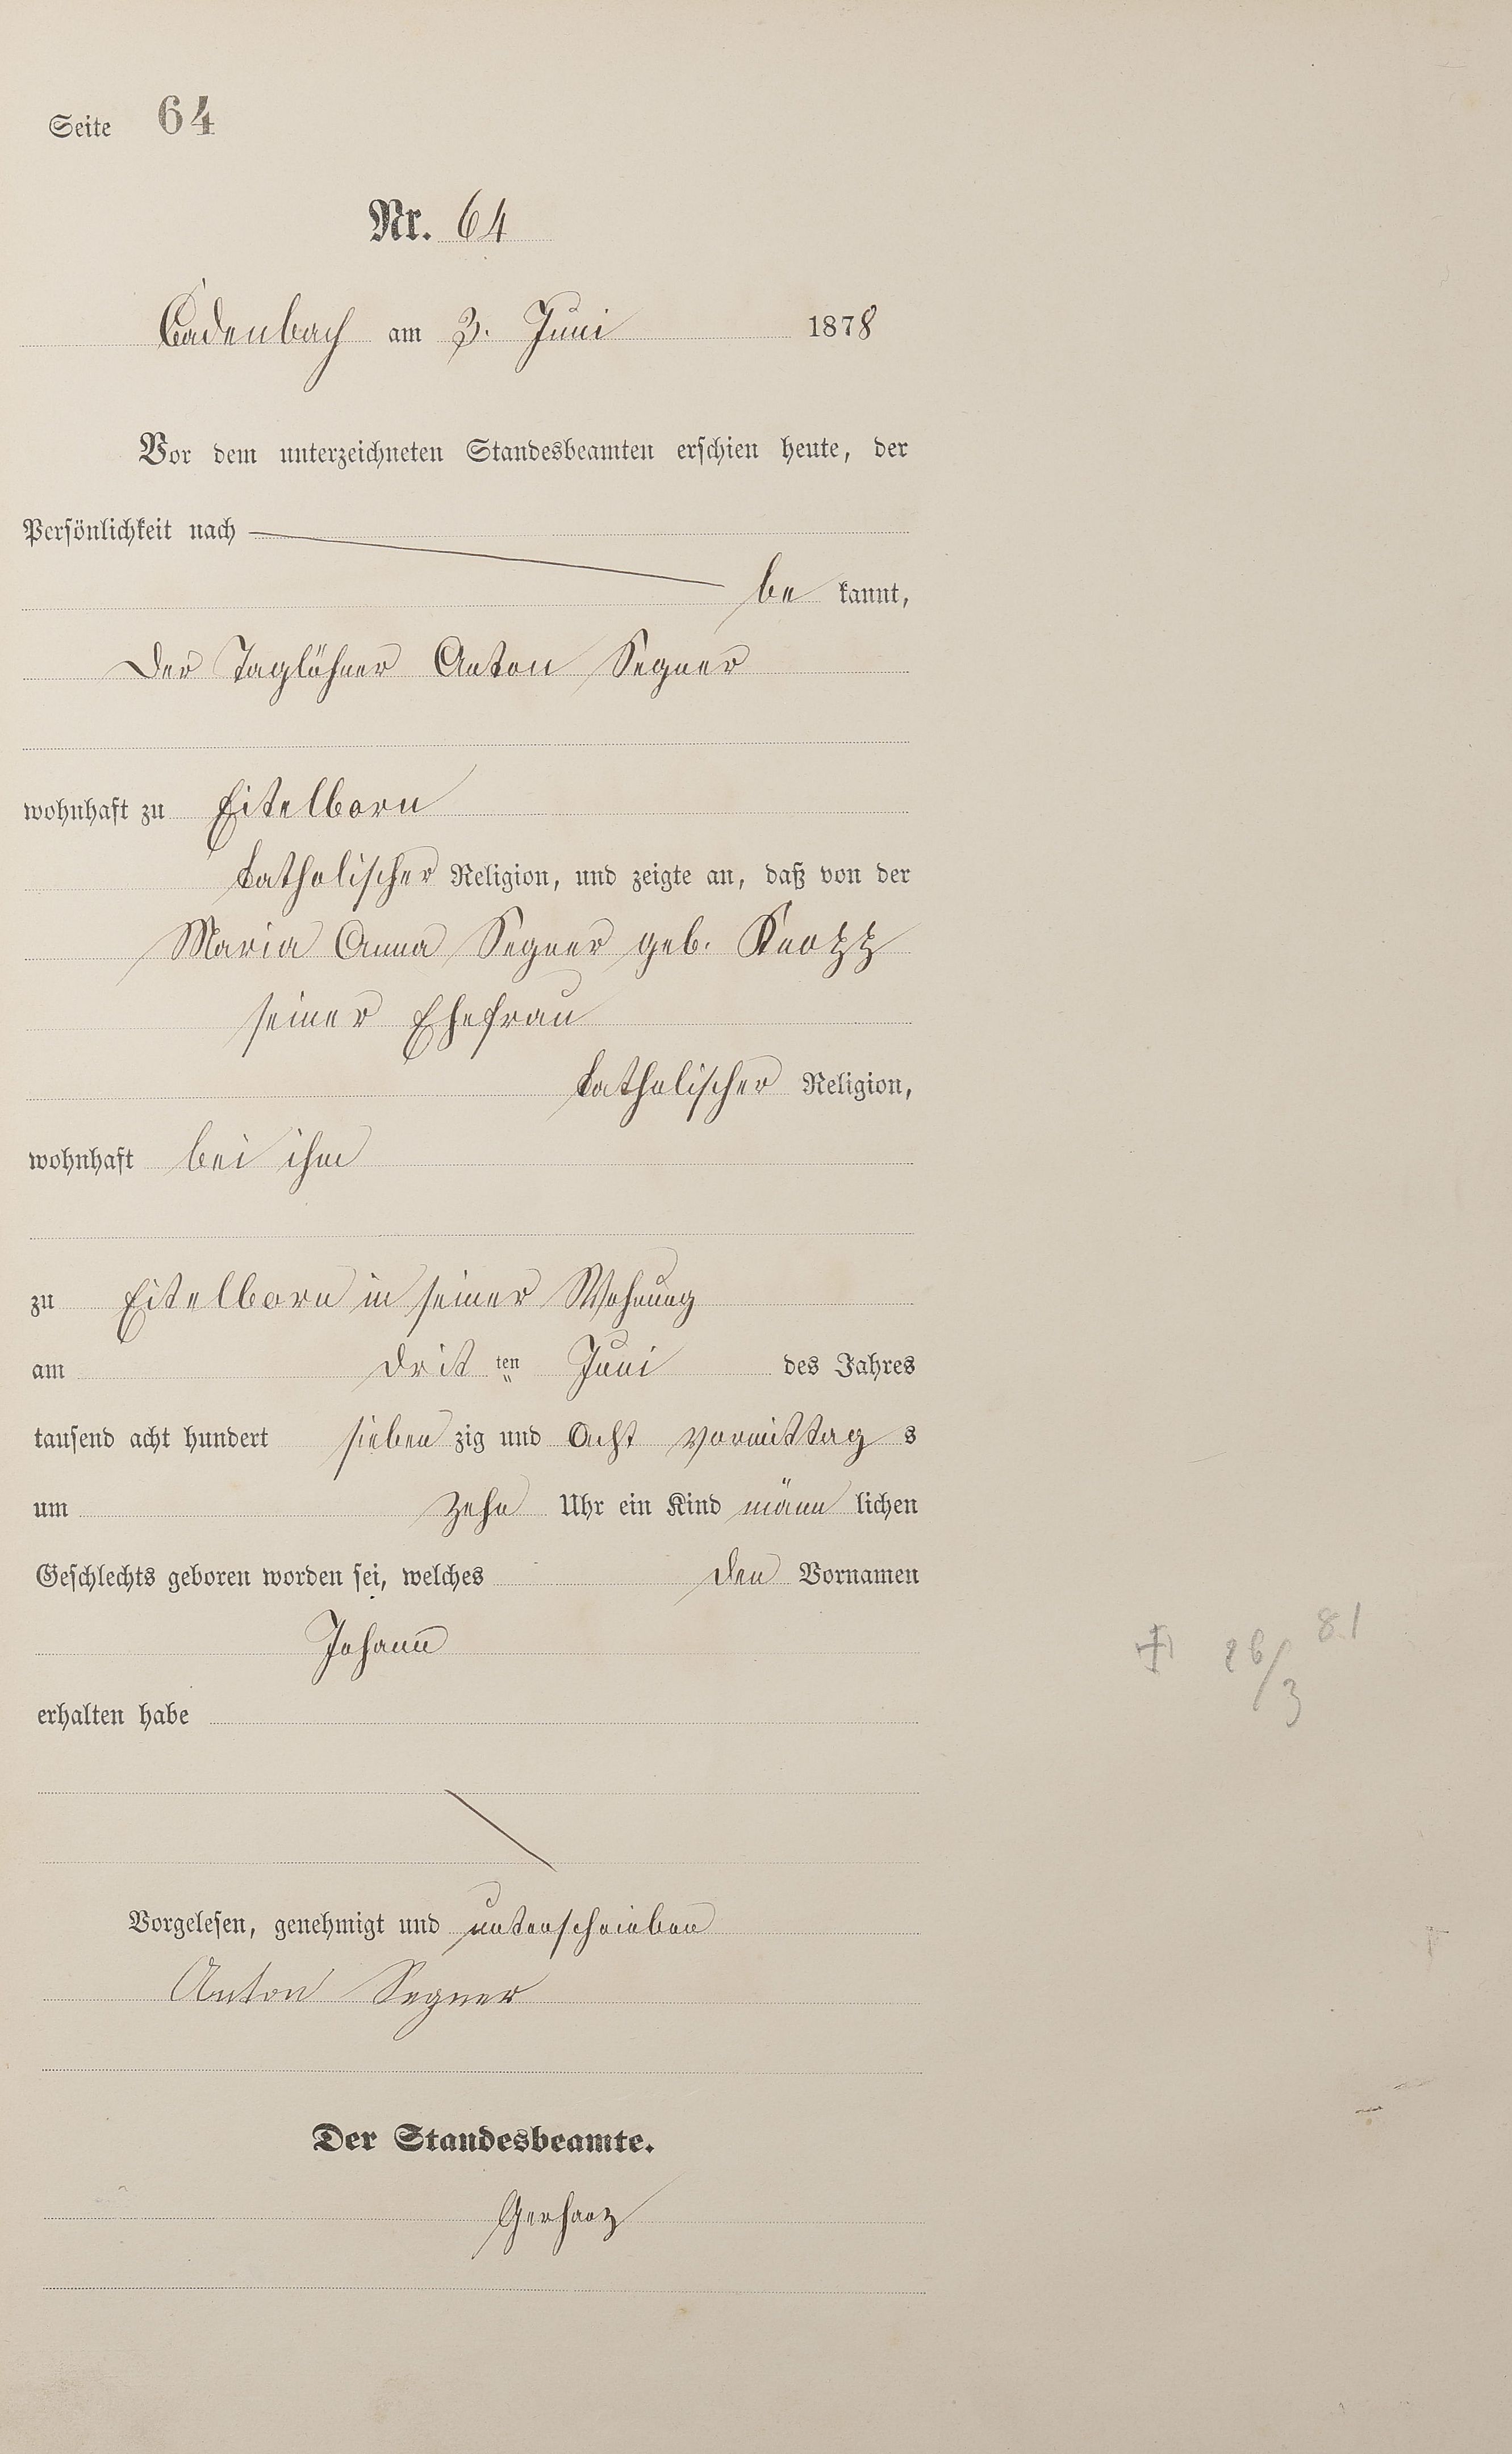 Seite 64
Nr. 64
Cadenbach am 3. Juni 1878
Vor dem unterzeichneten Standesbeamten erschien heute, der
Persönlichkeit nach
be kannt,
der Taglöhner Anton Segner
wohnhaft zu Eitelborn
katholischer Religion, und zeigte an, daß von der
Maria Anna Segner geb. Knopp
seiner Ehefrau
katholischer Religion,
wohnhaft bei ihm
zu Eitelborn in seiner Wohnung
am drit ten Juni des Jahres
tausend acht hundert sieben zig und acht vormittag s
um zehn Uhr ein Kind männ lichen
Geschlechts geboren worden sei, welches den Vornamen
Johann
† 26/3 81
erhalten habe
Vorgelesen, genehmigt und unterschrieben
Anton Segner
Der Standesbeamte.
Gerharz